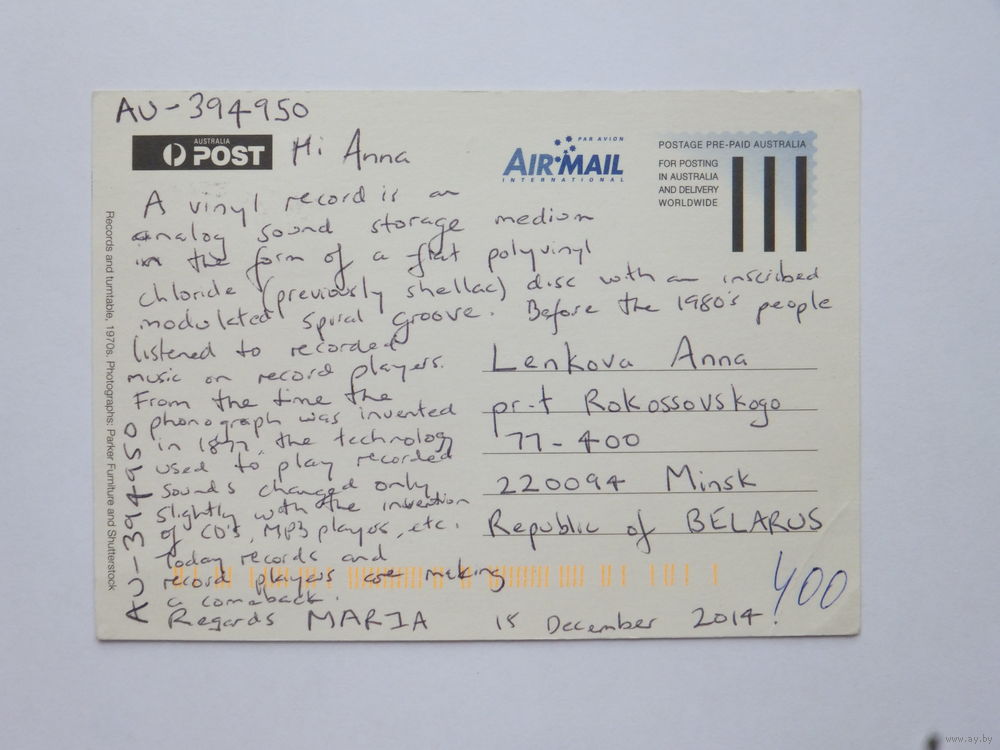 AU-394950
AUSTRALIA
POST
Hi Anna
PAR AVION
AIR MAIL
INTERNATIONAL
POSTAGE PRE-PAID AUSTRALIA
FOR POSTING
IN AUSTRALIA
AND DELIVERY
WORLDWIDE
A vinyl record is an
analog sound storage medium
in the form of a flat polyvinyl
chloride (previously shellac) disc with an inscribed
modulated spiral groove. Before the 1980's people
listened to recorded
music on record players.
From the time the
phonograph was invented
in 1877, the technology
used to play recorded
sounds changed only
slightly with the invention
of CD's, MP3 players, etc.
Today records and
record players are making
a comeback.
Regards MARIA 15 December 2014
Lenkova Anna
pr-t Rokossovskogo
77-400
220094 Minsk
Republic of BELARUS
400
AU-394950
Records and turntable, 1970s. Photographs: Parker Furniture and Shutterstock
www.ay.by